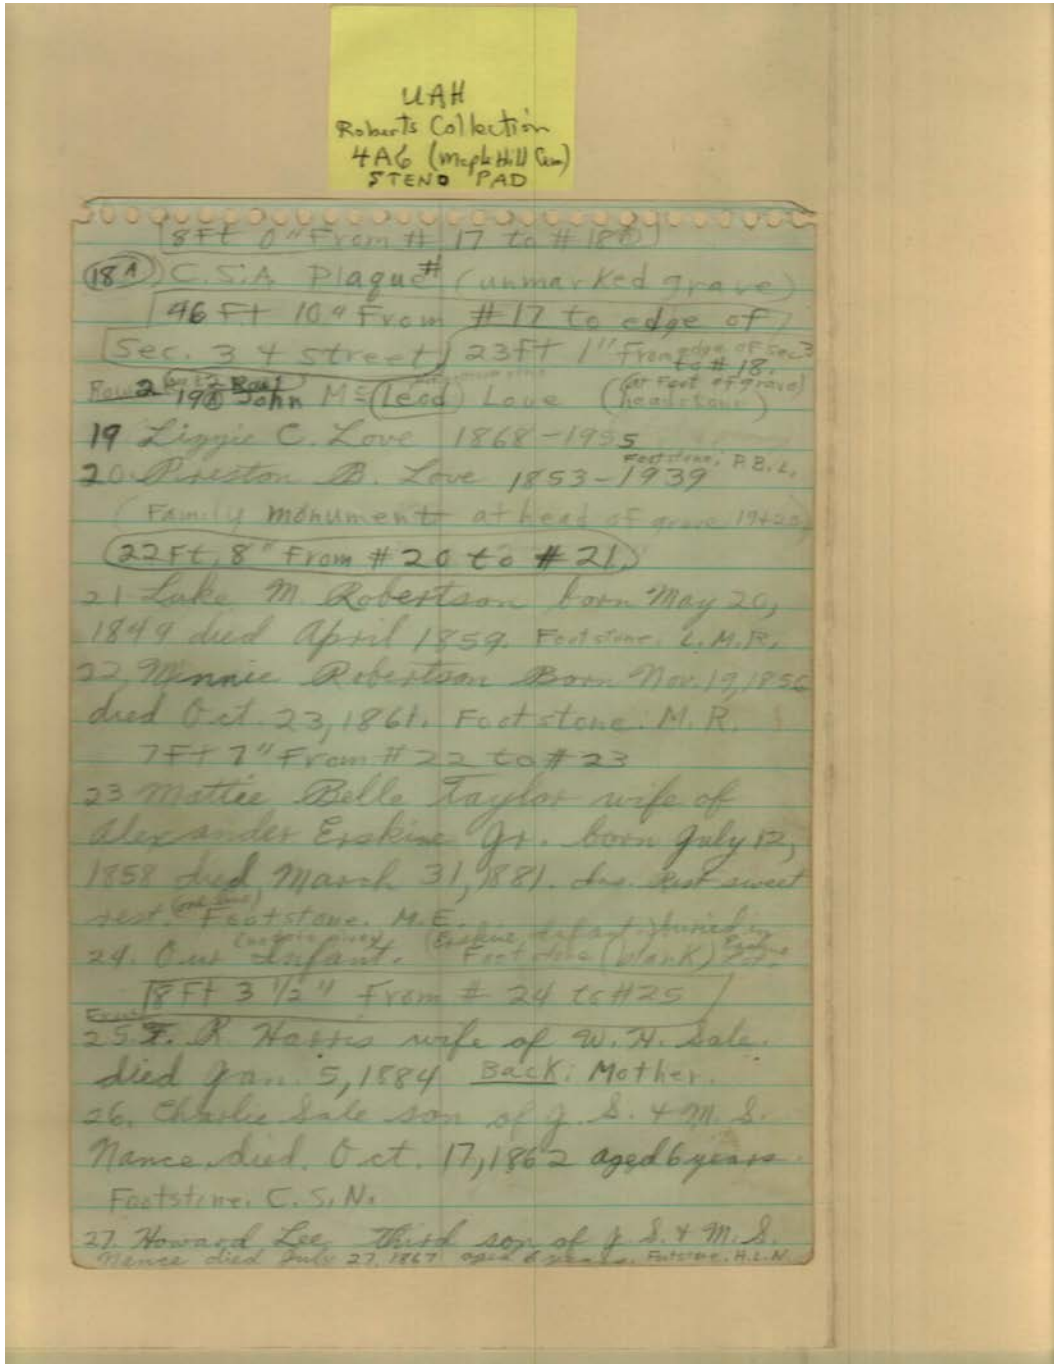 UAH
Roberts Collection
4A6 (Maple Hill Cem)
STENO PAD
8Ft 0" From # 17 to # 18
18A C.S.A. Plaque # (unmarked grave)
46 Ft 10" From #17 to edge of
Sec. 3 + street 23ft 1" From edge of Sec 3
to # 18.
(at Foot of grave)
Row 2 19A John Mc (Leod) Love (headstone)
19 Lizzie C. Love 1868-1955
Footstone, P.B.L.
20. Preston B. Love 1853-1939
(Family monument at head of grave 19+20)
22Ft, 8" From # 20 to # 21
21 Luke M. Robertson born May 20,
1849 died April 1859. Footstone. L.M.R.
22, Minnie Robertson Born Nov. 19, 1856
died Oct. 23, 1861. Footstone. M.R.
7Ft 7" From # 22 to # 23
23 Mattie Belle Taylor wife of
Alexander Erskine Jr. born July 12,
1858 died March 31, 1881. Ins. Rest sweet
rest. Footstone. M.E.
(Erskine infant) buried in
24. Our Infant. Footstone (blank) Lot.
18Ft 3 1/2" From # 24 to #25
Front
25. F. R. Harris wife of W. H. Sale.
died Jan. 5, 1884 Back: Mother.
26. Charlie Sale son of J. S. + M. S.
Nance died. Oct. 17, 1862 aged 6 years.
Footstone. C.S.N.
27. Howard Lee third son of J. S. + M. S.
Nance died July 27, 1867 aged 6 years. Footstone. H.L.N.